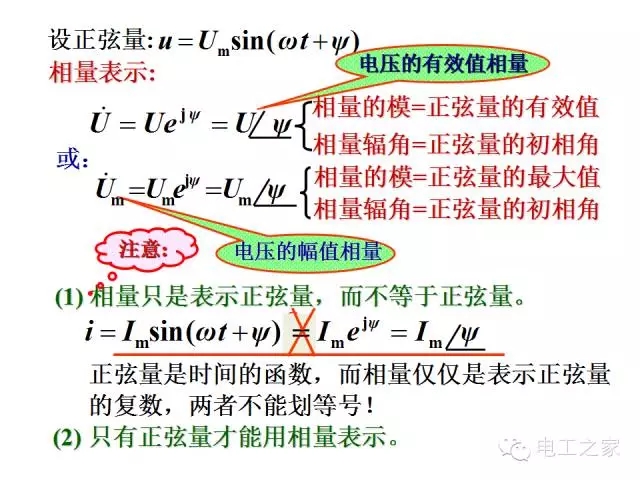 设正弦量: u = Uₘsin(ωt+ψ)
相量表示:
电压的有效值相量
U̇ = Ueʲᵠ = U/ψ
相量的模=正弦量的有效值
相量辐角=正弦量的初相角
或:
U̇ₘ=Uₘeʲᵠ=Uₘ/ψ
相量的模=正弦量的最大值
相量辐角=正弦量的初相角
注意:
电压的幅值相量
(1) 相量只是表示正弦量，而不等于正弦量。
i = Iₘsin(ωt+ψ) = Iₘeʲᵠ = Iₘ/ψ
正弦量是时间的函数，而相量仅仅是表示正弦量
的复数，两者不能划等号！
(2) 只有正弦量才能用相量表示。
电工之家